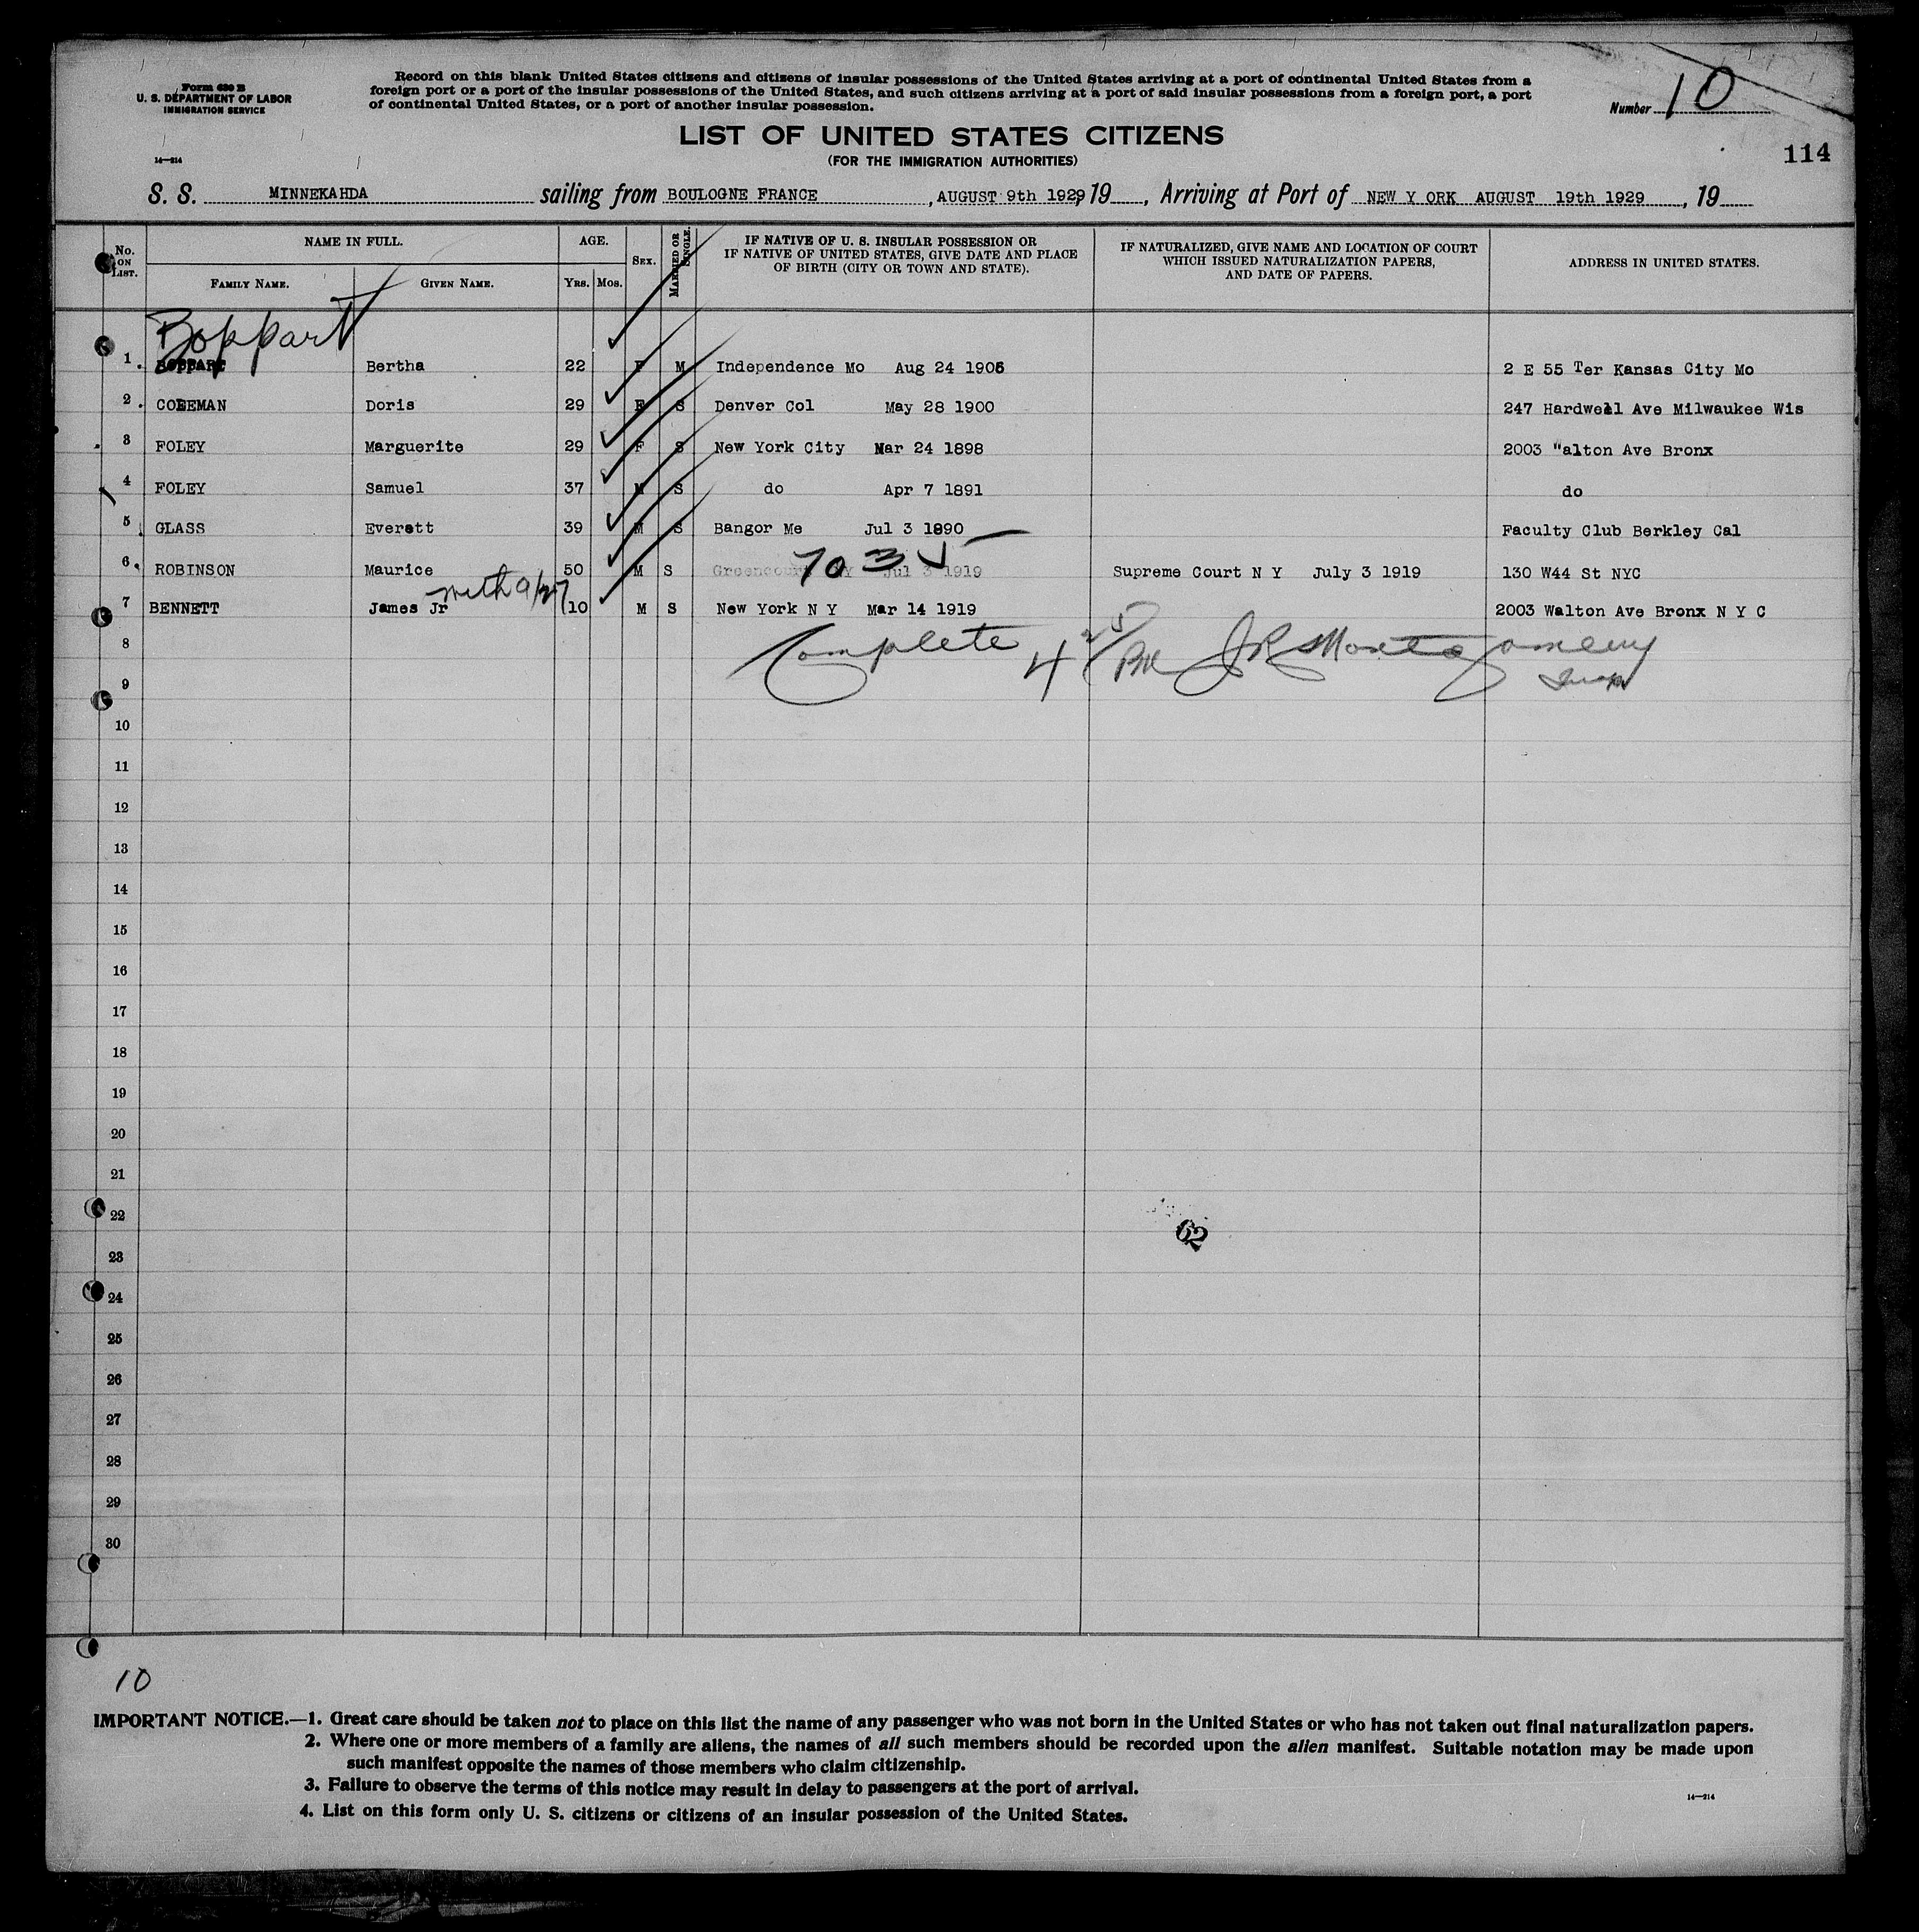 Form 630 B
U. S. DEPARTMENT OF LABOR
IMMIGRATION SERVICE
14—214
Record on this blank United States citizens and citizens of insular possessions of the United States arriving at a port of continental United States from a
foreign port or a port of the insular possessions of the United States, and such citizens arriving at a port of said insular possessions from a foreign port, a port
of continental United States, or a port of another insular possession.
Number 10
LIST OF UNITED STATES CITIZENS
(FOR THE IMMIGRATION AUTHORITIES)
114
S. S. MINNEKAHDA sailing from BOULOGNE FRANCE , AUGUST 9th 1929, 19 , Arriving at Port of NEW Y ORK AUGUST 19th 1929 , 19
No. ON LIST. NAME IN FULL. AGE. SEX. MARRIED OR SINGLE. IF NATIVE OF U. S. INSULAR POSSESSION OR IF NATIVE OF UNITED STATES, GIVE DATE AND PLACE OF BIRTH (CITY OR TOWN AND STATE). IF NATURALIZED, GIVE NAME AND LOCATION OF COURT WHICH ISSUED NATURALIZATION PAPERS, AND DATE OF PAPERS. ADDRESS IN UNITED STATES.
FAMILY NAME. GIVEN NAME. YRS. MOS.
Boppart
1 BOPPART Bertha 22 F M Independence Mo Aug 24 1906 2 E 55 Ter Kansas City Mo
2 COLEMAN Doris 29 F S Denver Col May 28 1900 247 Hardwell Ave Milwaukee Wis
3 FOLEY Marguerite 29 F S New York City Mar 24 1898 2003 "alton Ave Bronx
4 FOLEY Samuel 37 M S do Apr 7 1891 do
5 GLASS Everett 39 M S Bangor Me Jul 3 1890 Faculty Club Berkley Cal
703
6 ROBINSON Maurice 50 M S Greencourt NY Jul 3 1919 Supreme Court N Y July 3 1919 130 W44 St NYC
7 BENNETT James Jr 10 M S New York N Y Mar 14 1919 2003 Walton Ave Bronx N Y C
8 Complete 4 25 PM J R Montgomery
9
10
11
12
13
14
15
16
17
18
19
20
21
22
62
23
24
25
26
27
28
29
30
10
IMPORTANT NOTICE.—1. Great care should be taken not to place on this list the name of any passenger who was not born in the United States or who has not taken out final naturalization papers.
2. Where one or more members of a family are aliens, the names of all such members should be recorded upon the alien manifest. Suitable notation may be made upon
such manifest opposite the names of those members who claim citizenship.
3. Failure to observe the terms of this notice may result in delay to passengers at the port of arrival.
4. List on this form only U. S. citizens or citizens of an insular possession of the United States.
14—214